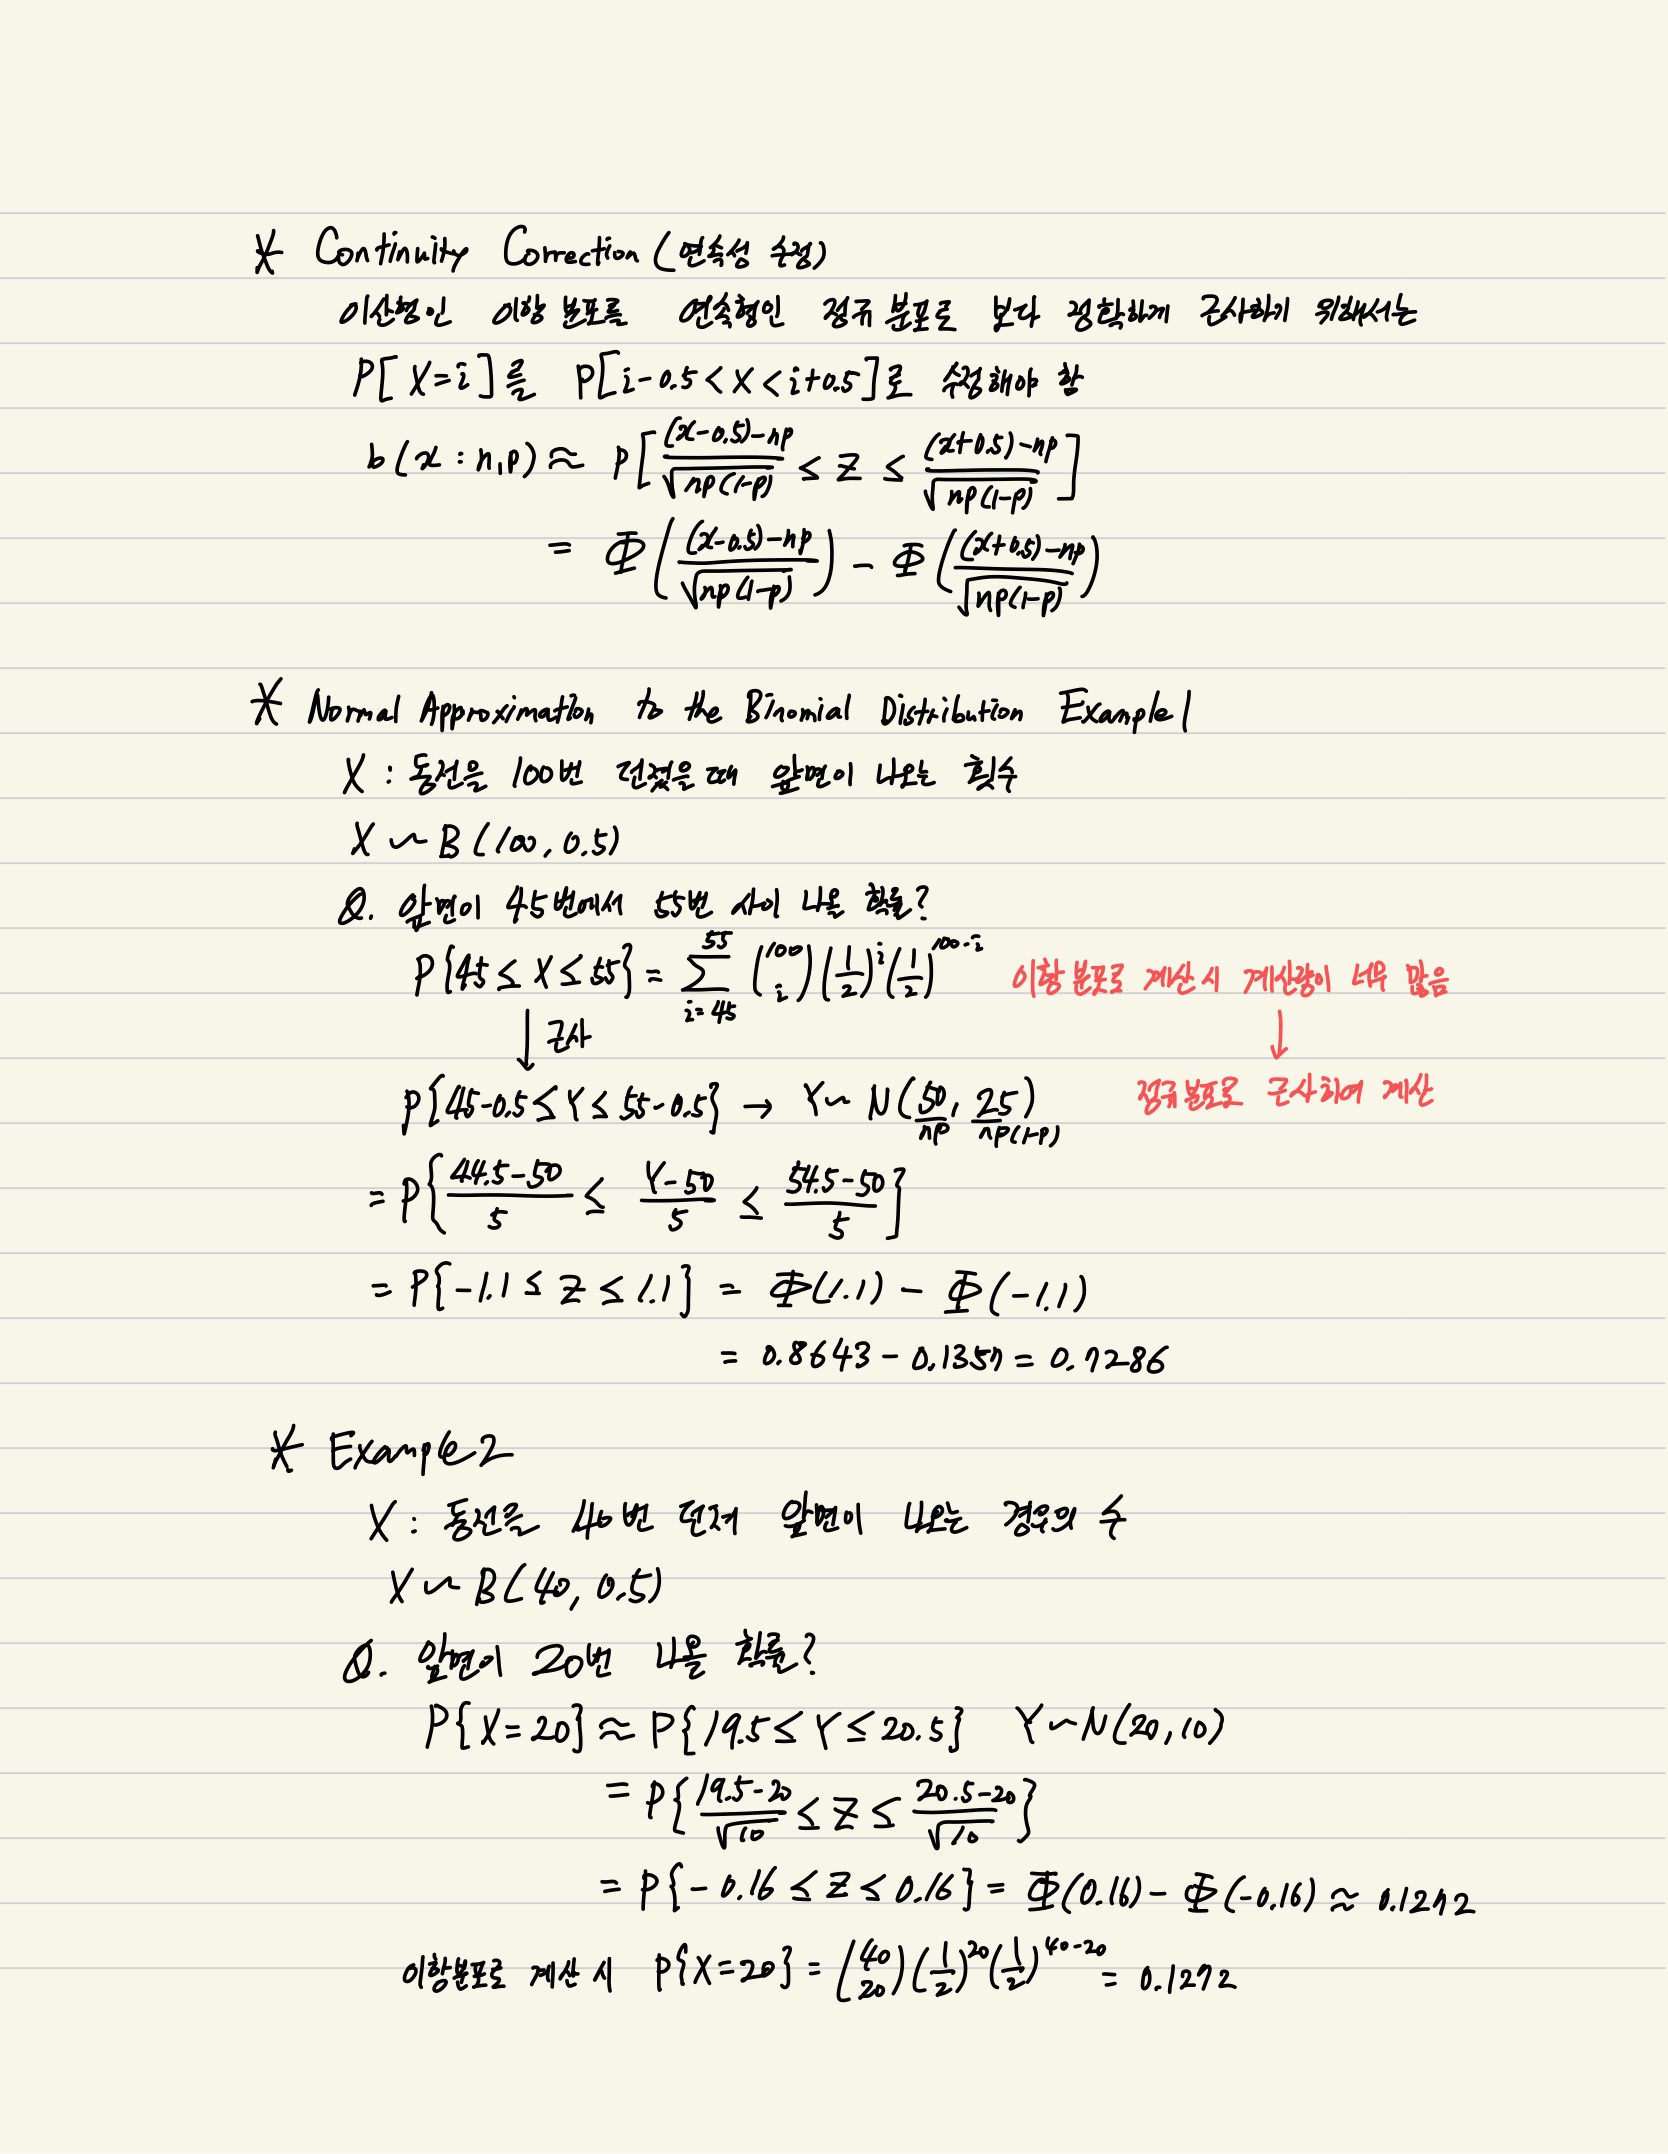 * Continuity Correction (연속성 수정)
이산형인 이항 분포를 연속형인 정규 분포로 보다 정확하게 근사하기 위해서는
P[X=i]를 P[i-0.5<X<i+0.5]로 수정해야 함
b(x:n,p) ≈ P[((x-0.5)-np)/√(np(1-p)) ≤ Z ≤ ((x+0.5)-np)/√(np(1-p))]
= Φ(((x-0.5)-np)/√(np(1-p))) - Φ(((x+0.5)-np)/√(np(1-p)))
* Normal Approximation to the Binomial Distribution Example 1
X : 동전을 100번 던졌을 때 앞면이 나오는 횟수
X ~ B(100, 0.5)
Q. 앞면이 45번에서 55번 사이 나올 확률?
P{45 ≤ X ≤ 55} = ∑_{i=45}^{55} (100 i)(1/2)^i (1/2)^{100-i} 이항 분포로 계산 시 계산량이 너무 많음
↓ 근사 ↓
P{45-0.5 ≤ Y ≤ 55-0.5} → Y ~ N(50, 25) 정규분포로 근사하여 계산
np np(1-p)
= P{(44.5-50)/5 ≤ (Y-50)/5 ≤ (54.5-50)/5}
= P{-1.1 ≤ Z ≤ 1.1} = Φ(1.1) - Φ(-1.1)
= 0.8643 - 0.1357 = 0.7286
* Example 2
X : 동전를 40번 던져 앞면이 나오는 경우의 수
X ~ B(40, 0.5)
Q. 앞면이 20번 나올 확률?
P{X=20} ≈ P{19.5 ≤ Y ≤ 20.5} Y ~ N(20, 10)
= P{(19.5-20)/√10 ≤ Z ≤ (20.5-20)/√10}
= P{-0.16 ≤ Z ≤ 0.16} = Φ(0.16) - Φ(-0.16) ≈ 0.1272
이항분포로 계산 시 P{X=20} = (40 20)(1/2)^20 (1/2)^{40-20} = 0.1272